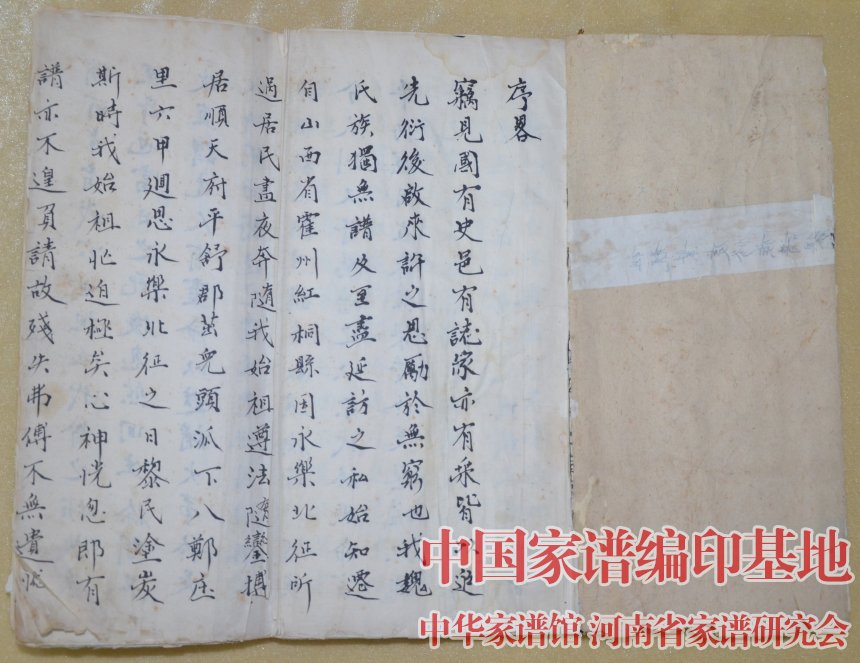 序畧
竊見國有史邑有誌家亦有乘皆以迪
先衍後啟來許之思勵於無窮也我魏
氏族獨無譜及至盡延訪之私始知遷
自山西省霍州紅桐縣因永樂北征所
過居民盡夜奔隨我始祖遵法隨鑾搏
居順天府平舒郡茁兜頭派下八鄭庄
里六甲迴思永樂北征之日黎民塗炭
斯時我始祖忙迫極矣心神恍忽即有
譜亦不遑負請故殘失弗傳不無遺忘
中国家谱编印基地
中华家谱馆 河南省家谱研究会